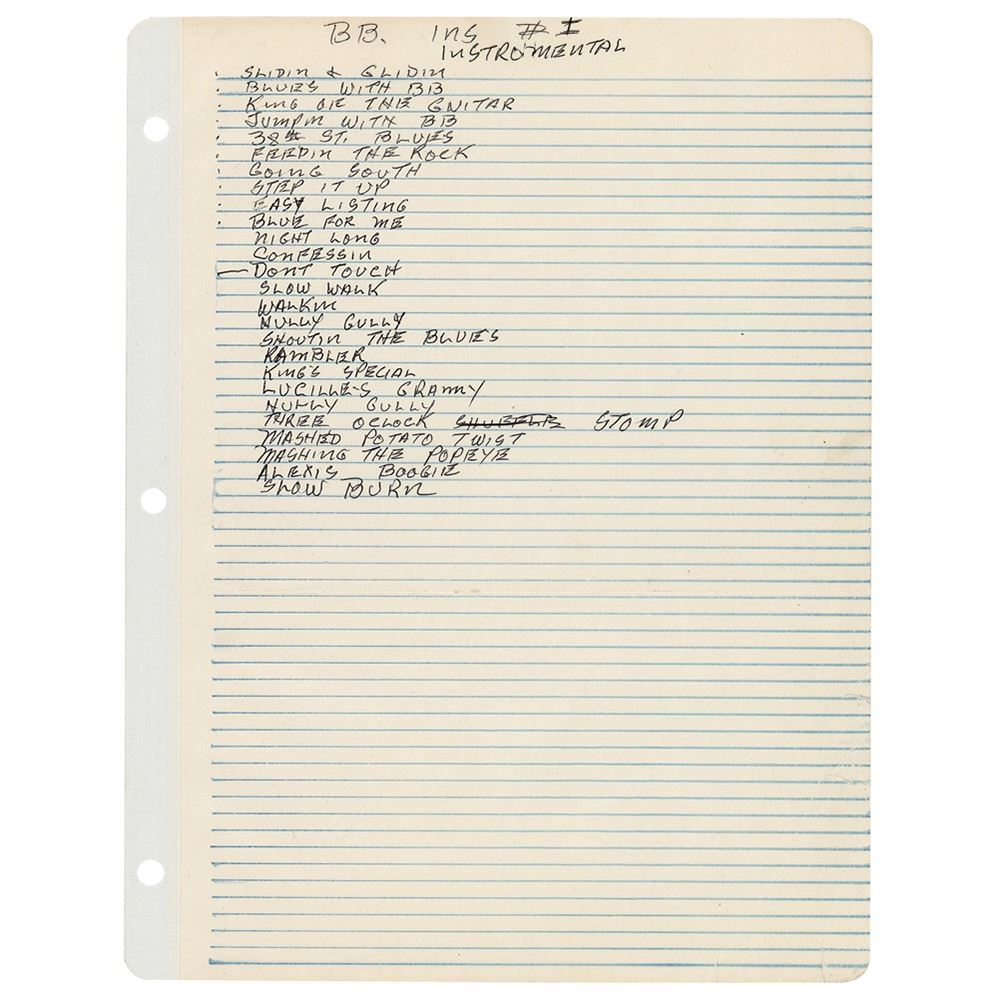 BB. INS # I
INSTROMENTAL
. SLIDIN & GLIDIN
. BLUES WITH BB
. KING OF THE GUITAR
. JUMPIN WITH BB
. 38th ST. BLUES
. FEEDIN THE ROCK
. GOING SOUTH
. STEP IT UP
. EASY LISTING
. BLUE FOR ME
NIGHT LONG
CONFESSIN
— DONT TOUCH
SLOW WALK
WALKIN
HULLY GULLY
SHOUTIN THE BLUES
RAMBLER
KING'S SPECIAL
LUCILLE'S GRANNY
HULLY GULLY
THREE OCLOCK SHUFFLE STOMP
MASHED POTATO TWIST
MASHING THE POPEYE
ALEXIS BOOGIE
SLOW BURN